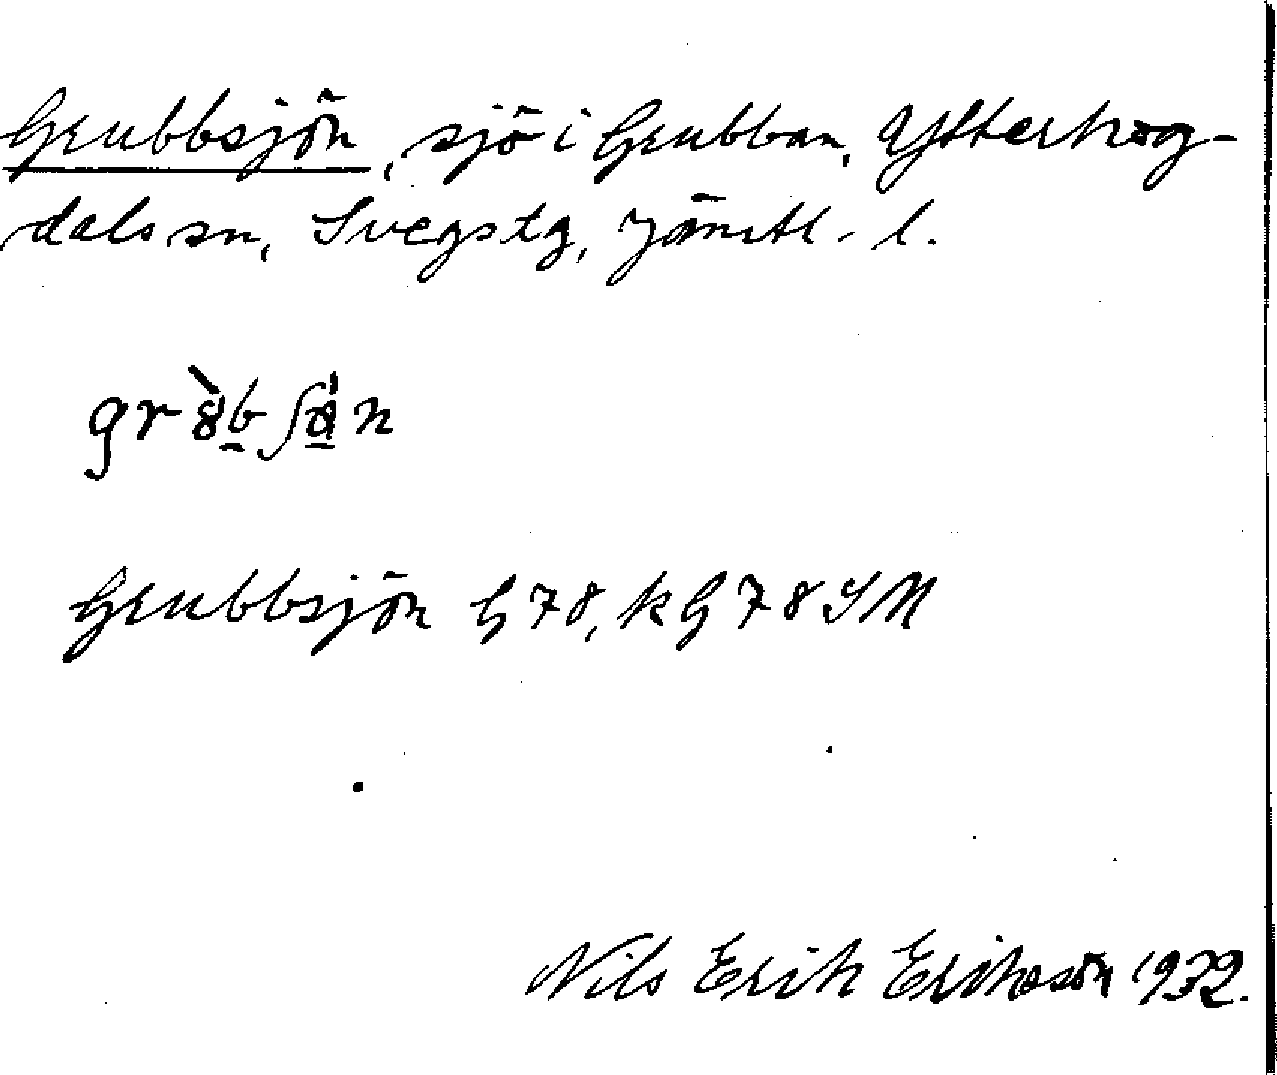 Grubbsjön, sjö i Grubban, Ytterhog-
dals sn, Svegs tg, Jämtl. l.
Grubbsjön G 78, k G 78 SM
Nils Erik Erikson 1932.